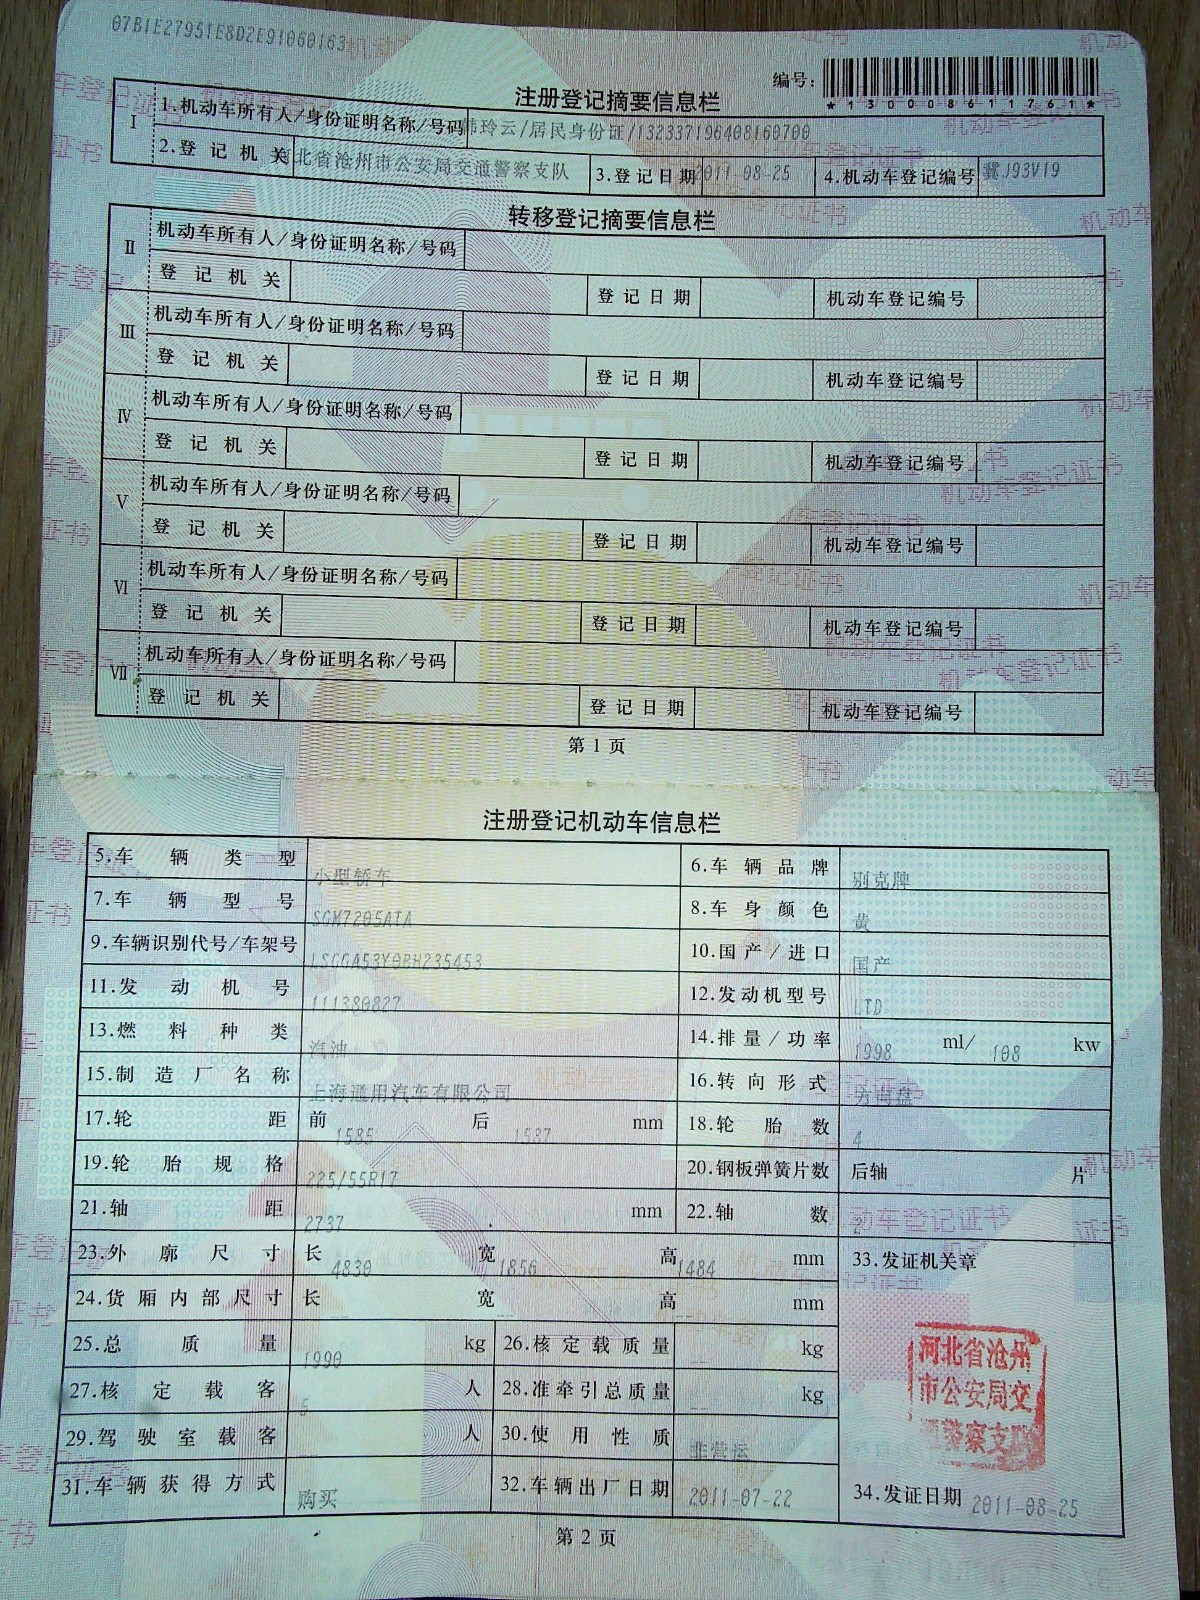 07B1E27951E8D2E91060163
编号：
*130008611761*
注册登记摘要信息栏
Ⅰ 1.机动车所有人/身份证明名称/号码 韩玲云/居民身份证/132337196408160700
2.登记机关 河北省沧州市公安局交通警察支队 3.登记日期 2011-08-25 4.机动车登记编号 冀J93V19
转移登记摘要信息栏
Ⅱ 机动车所有人/身份证明名称/号码
登记机关 登记日期 机动车登记编号
Ⅲ 机动车所有人/身份证明名称/号码
登记机关 登记日期 机动车登记编号
Ⅳ 机动车所有人/身份证明名称/号码
登记机关 登记日期 机动车登记编号
Ⅴ 机动车所有人/身份证明名称/号码
登记机关 登记日期 机动车登记编号
Ⅵ 机动车所有人/身份证明名称/号码
登记机关 登记日期 机动车登记编号
Ⅶ 机动车所有人/身份证明名称/号码
登记机关 登记日期 机动车登记编号
第1页
注册登记机动车信息栏
5.车辆类型 小型轿车 6.车辆品牌 别克牌
7.车辆型号 SGM7205ATA 8.车身颜色 黄
9.车辆识别代号/车架号 LSGGA53Y0BH235453 10.国产/进口 国产
11.发动机号 111380827 12.发动机型号 LTD
13.燃料种类 汽油 14.排量/功率 1998 ml/ 108 kw
15.制造厂名称 上海通用汽车有限公司 16.转向形式 方向盘
17.轮距 前 1585 后 1587 mm 18.轮胎数 4
19.轮胎规格 225/55R17 20.钢板弹簧片数 后轴 -- 片
21.轴距 2737 mm 22.轴数 2
23.外廓尺寸 长 4830 宽 1856 高 1484 mm 33.发证机关章
24.货厢内部尺寸 长 -- 宽 -- 高 -- mm
25.总质量 1990 kg 26.核定载质量 -- kg
27.核定载客 5 人 28.准牵引总质量 -- kg
河北省沧州
市公安局交
通警察支队
29.驾驶室载客 人 30.使用性质 非营运
31.车辆获得方式 购买 32.车辆出厂日期 2011-07-22 34.发证日期 2011-08-25
第2页